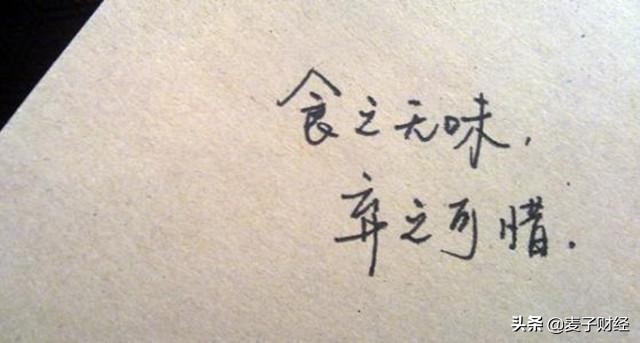 食之无味，
弃之可惜．
头条 @麦子财经